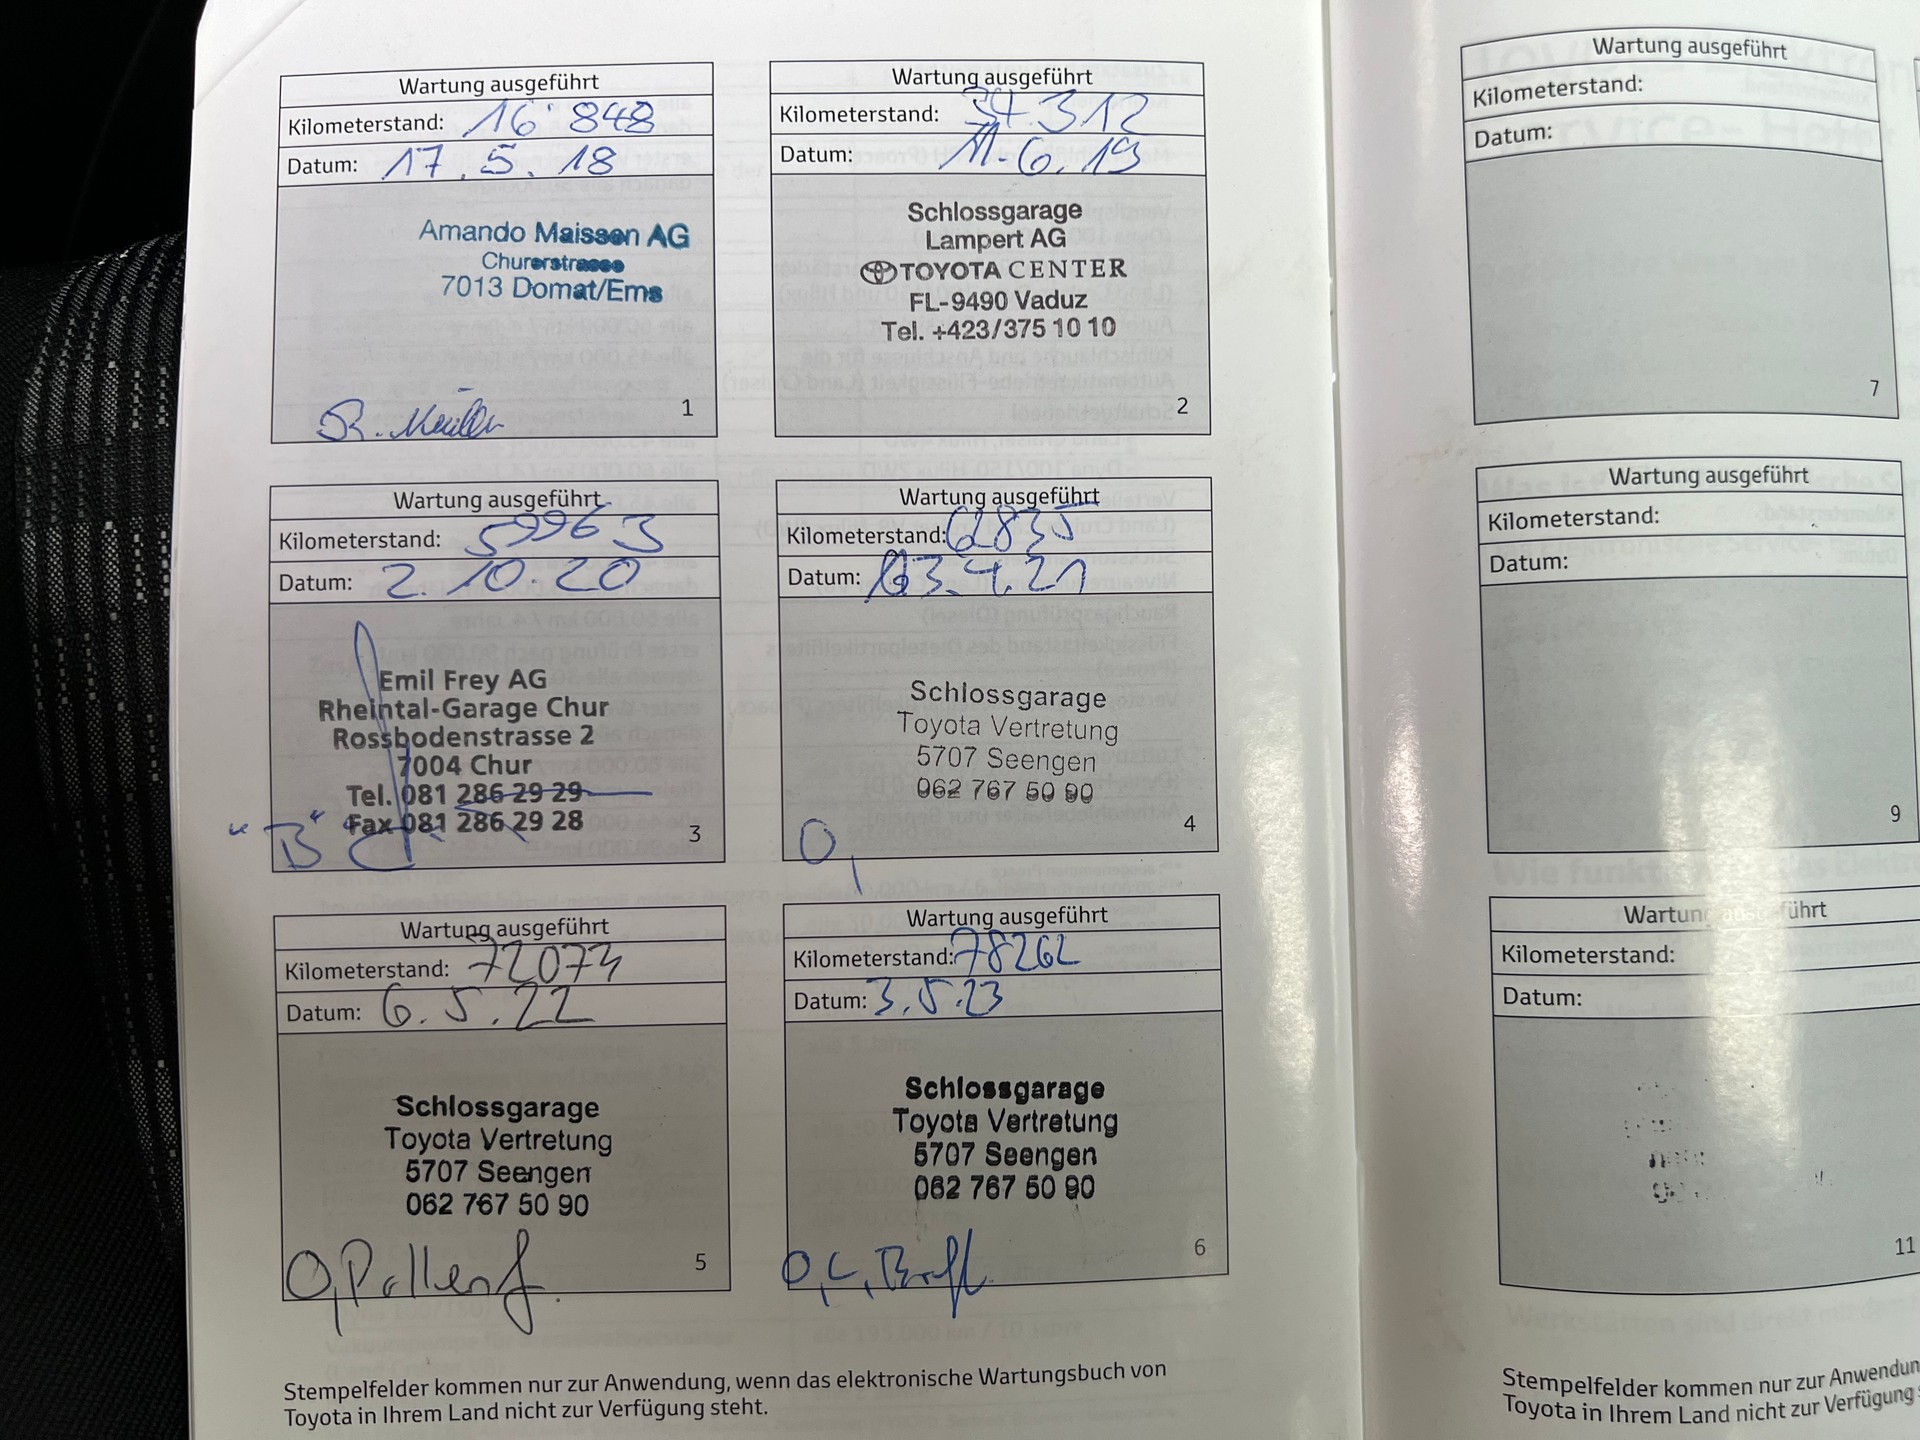 Wartung ausgeführt
Kilometerstand: 16'848
Datum: 17.5.18
Amando Maissen AG
Churerstrasse
7013 Domat/Ems
1
Wartung ausgeführt
Kilometerstand: 37.312
Datum: 11.6.19
Schlossgarage
Lampert AG
TOYOTA CENTER
FL-9490 Vaduz
Tel. +423/375 10 10
2
Wartung ausgeführt
Kilometerstand: 59963
Datum: 2.10.20
Emil Frey AG
Rheintal-Garage Chur
Rossbodenstrasse 2
7004 Chur
Tel. 081 286 29 29
Fax 081 286 29 28
"B"
3
Wartung ausgeführt
Kilometerstand:
Datum: 4.21
Schlossgarage
Toyota Vertretung
5707 Seengen
062 767 50 90
4
Wartung ausgeführt
Kilometerstand:
Datum: 6.5.22
Schlossgarage
Toyota Vertretung
5707 Seengen
062 767 50 90
5
Wartung ausgeführt
Kilometerstand: 78262
Datum: 3.5.23
Schlossgarage
Toyota Vertretung
5707 Seengen
062 767 50 90
6
Stempelfelder kommen nur zur Anwendung, wenn das elektronische Wartungsbuch von
Toyota in Ihrem Land nicht zur Verfügung steht.
Wartung ausgeführt
Kilometerstand:
Datum:
7
Wartung ausgeführt
Kilometerstand:
Datum:
9
Wartung ausgeführt
Kilometerstand:
Datum:
11
Stempelfelder kommen nur zur Anwendun
Toyota in Ihrem Land nicht zur Verfügung